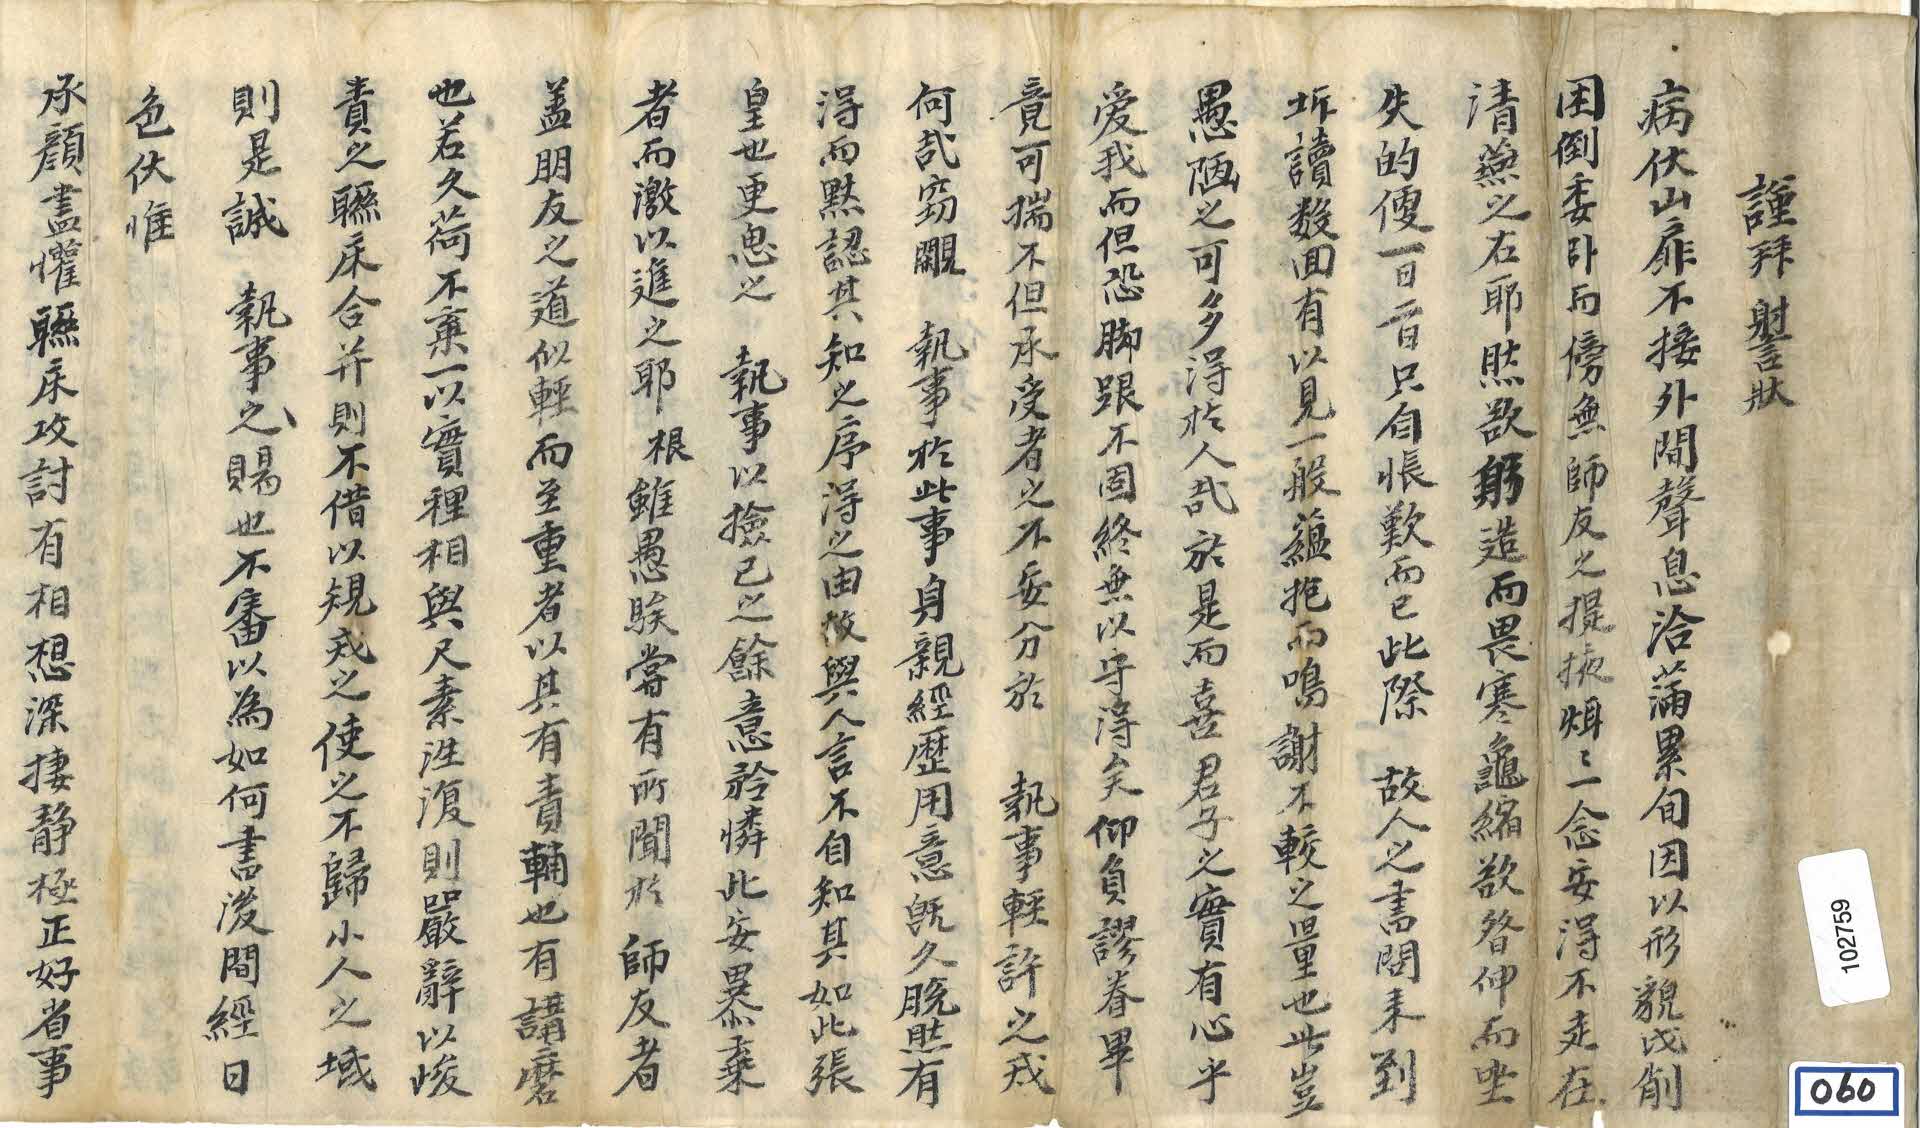 謹拜 謝狀
病伏山扉不接外間聲息洽滿累旬因以形貌戌削
困倒委卧而傍無師友之提掖烟〻一念安得不走在
清㷼之右耶然欲躬造而畏寒龜縮欲發伸而坐
失的便一日二日只自悵歎而已此際 故人之書閒来到
坼讀数回有以見一般蘊抱而鳴謝不較之量也此豈
愚陋之可多得於人哉於是而喜君子之實有心乎
爱我而但恐脚跟不固終無以守得矣仰負謬眷畢
竟可揣不但承受者之不妄分於 執事輕許之戒
何哉窃覵 執事於此事身親經歷用意旣久晩然有
得而默認其知之序得之由故與人言不自知其如此張
皇也更思之 執事以撿已之餘意矜憐此妄異黍棄
者而激以進之耶 根雖愚騃嘗有所聞於 師友者
盖朋友之道似輕而至重者以其有責輔也有講磨
也若久荷不棄一以實裡相與尺素往復則嚴辭以峻
責之聮床合并則不借以規戒之使之不歸小人之域
則是誠 執事之賜也不審以為如何書後閱經日
色伏惟
承顔盡懽聮床攻討有相想深捿靜極正好省事
102759
060